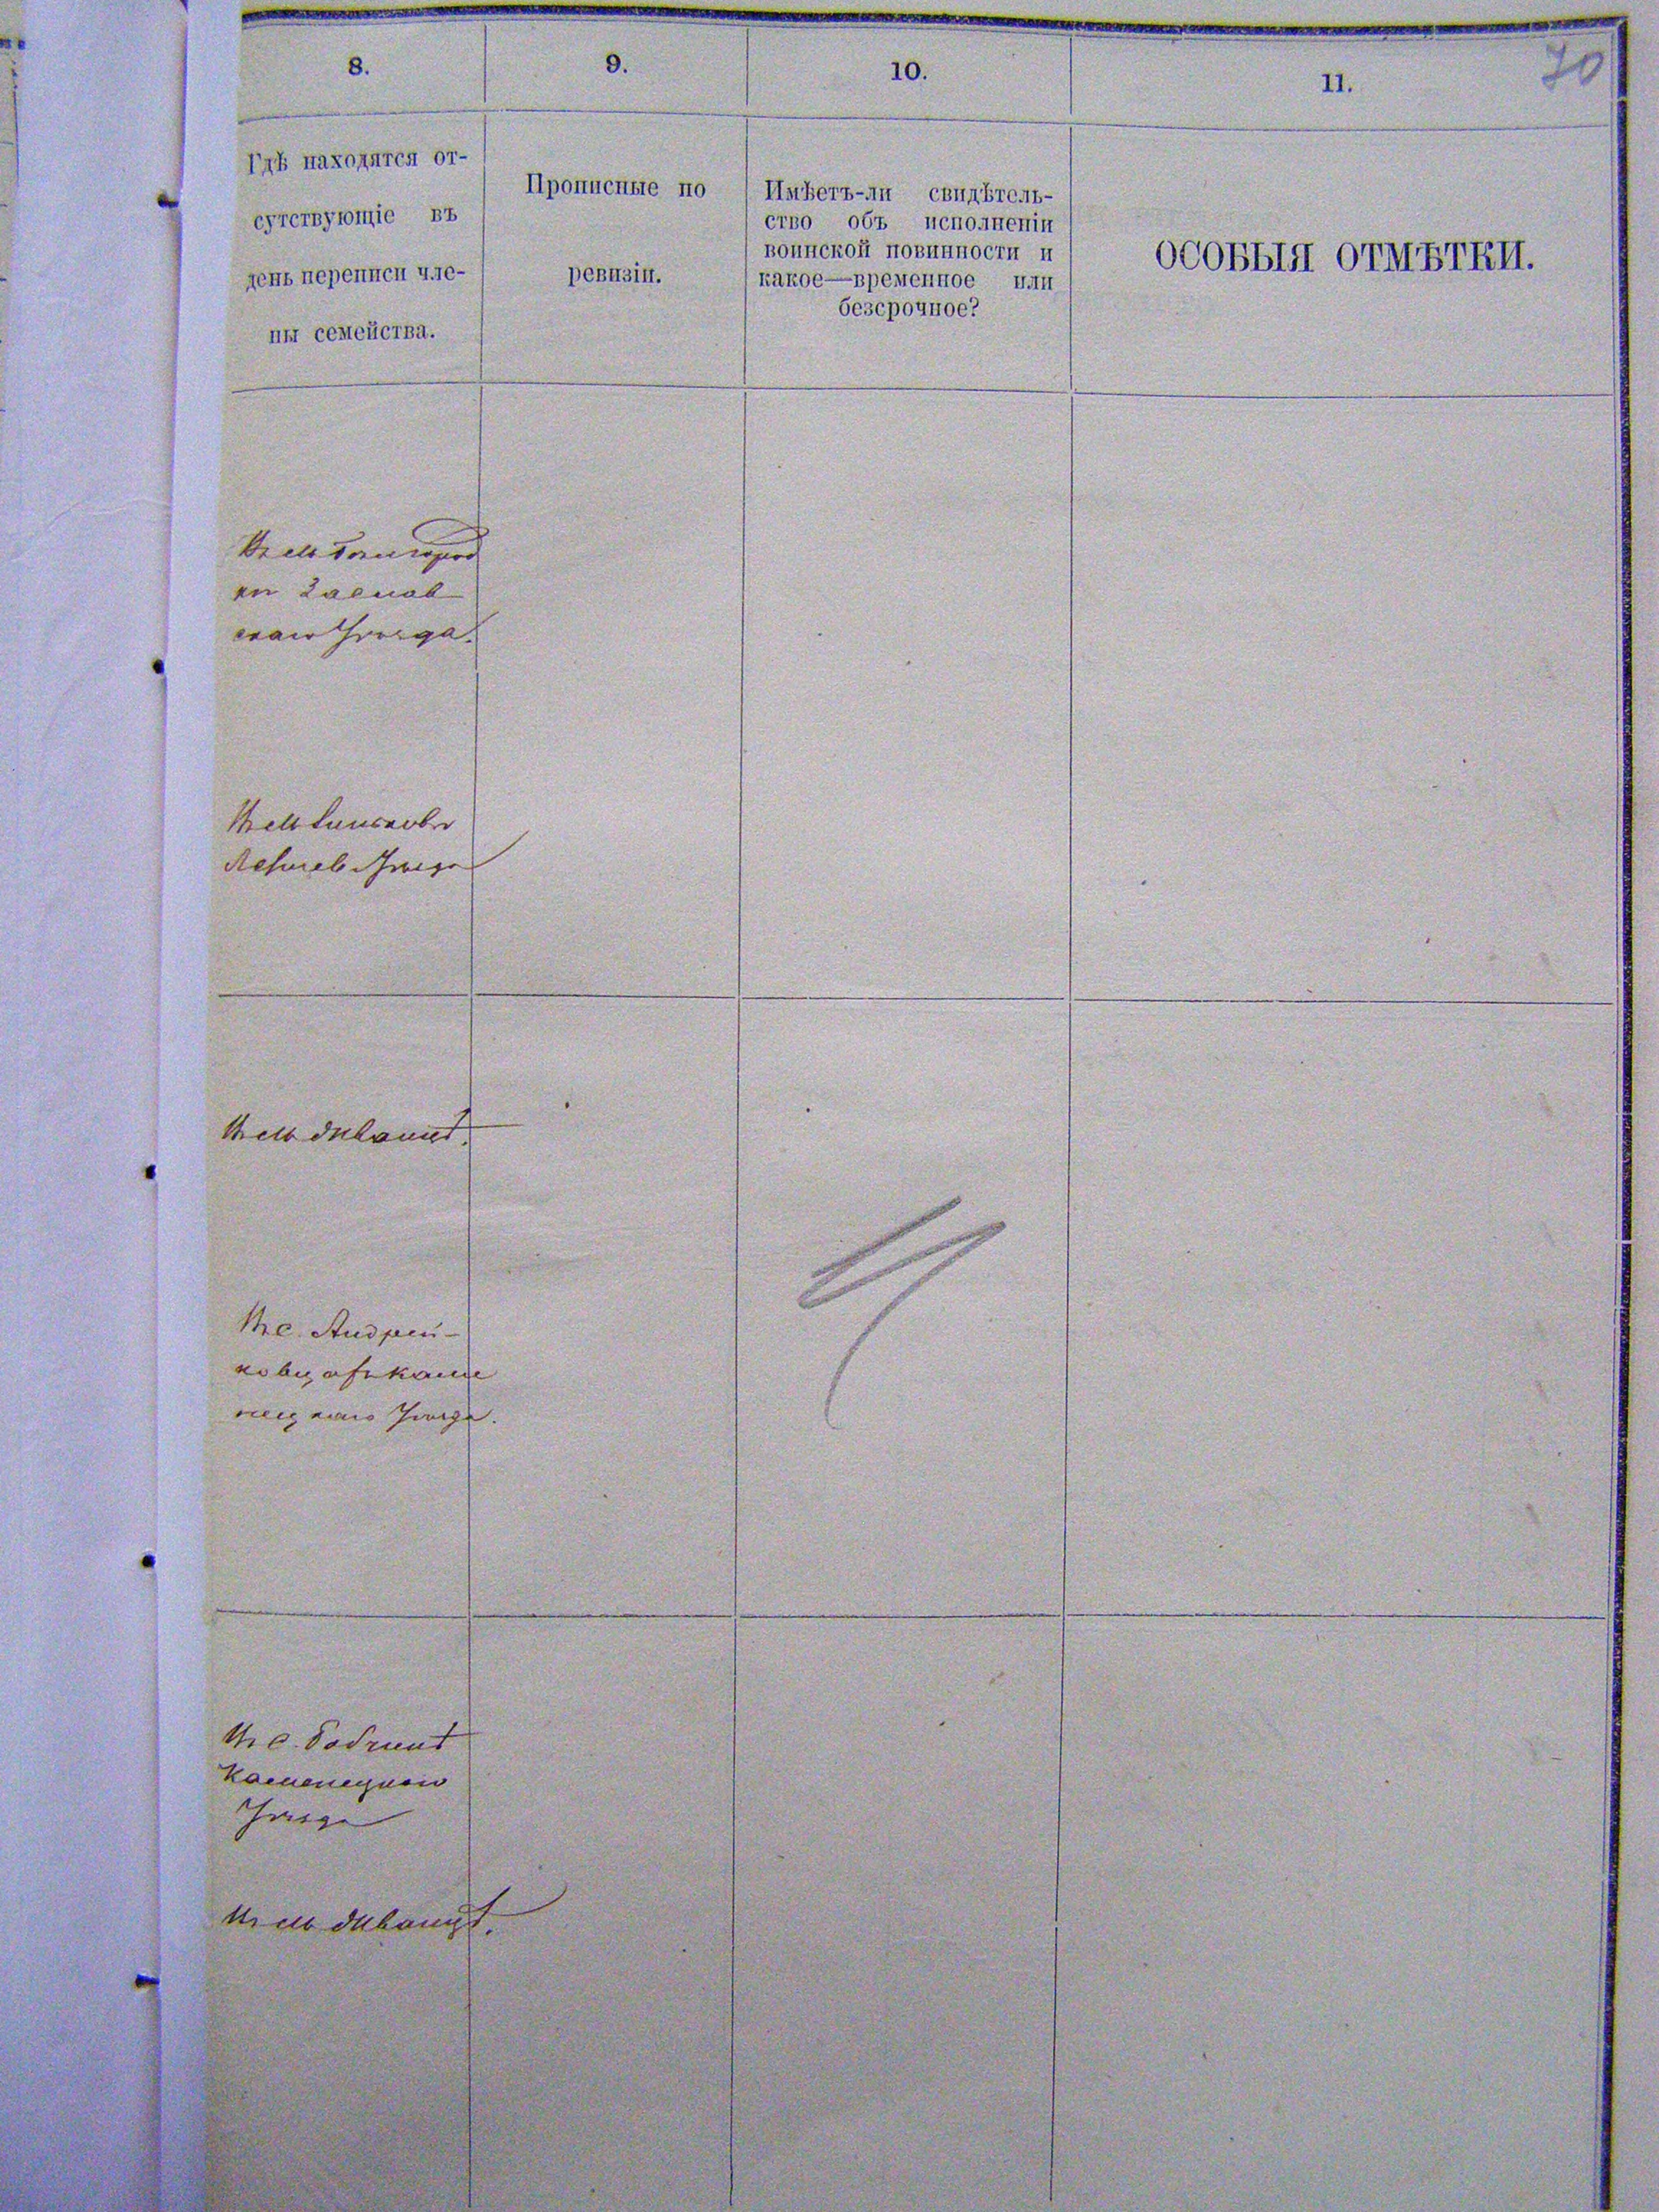 70
8.
9.
10.
11.
Гдѣ находятся от-
сутствующіе въ
день переписи чле-
ны семейства.
Прописные по
ревизіи.
Имѣетъ-ли свидѣтель-
ство объ исполненіи
воинской повинности и
какое—временное или
безсрочное?
ОСОБЫЯ ОТМѢТКИ.
Въ м
Заслав
скаго Уѣзда.
Въ м
Уѣзда
Въ м
Въ с. Андрей-
ковцахъ Каме
нецкаго Уѣзда.
Въ с.
Каменецкаго
Уѣзда
Въ м